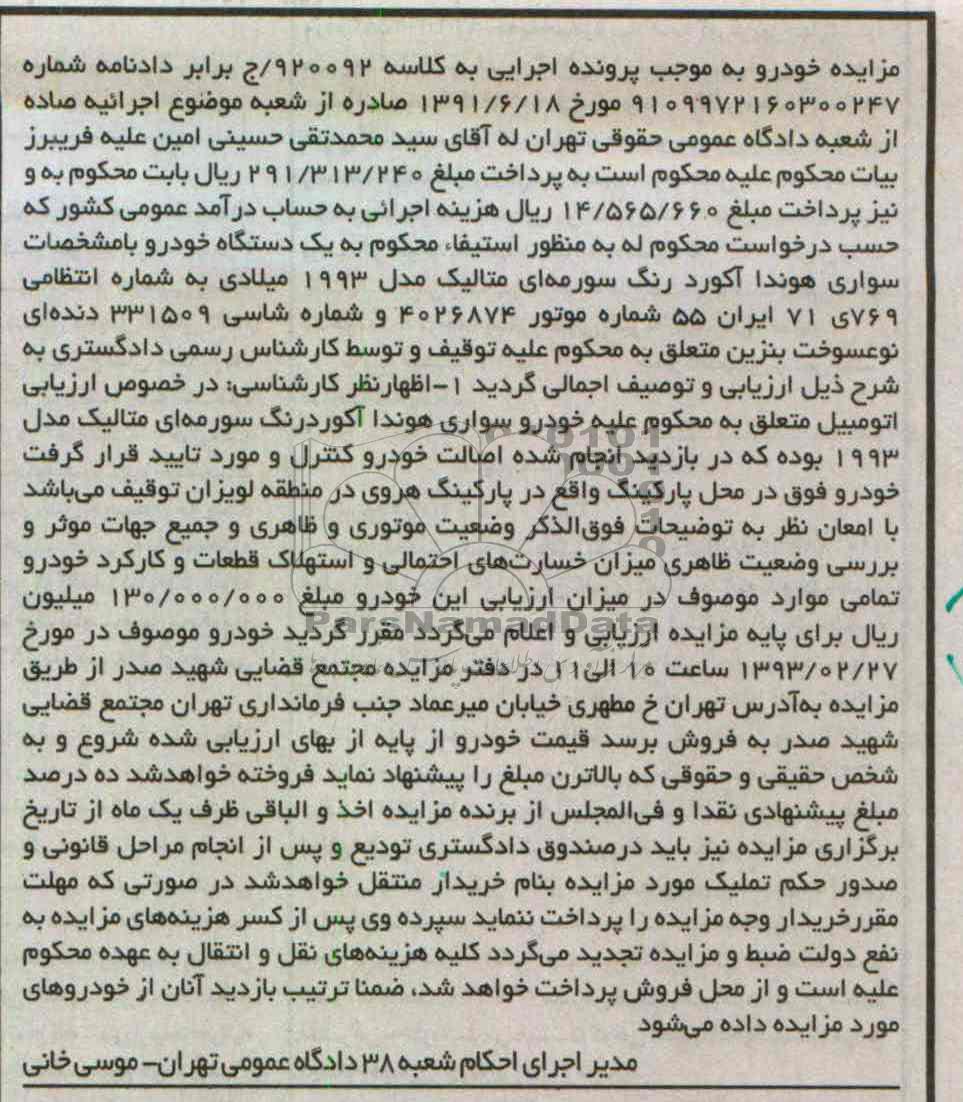 مزایده خودرو به موجب پرونده اجرایی به کلاسه ۹۲۰۰۹۲/ج برابر دادنامه شماره
۹۱۰۹۹۷۲۱۶۰۳۰۰۲۴۷ مورخ ۱۳۹۱/۶/۱۸ صادره از شعبه موضوع اجرائیه صاده
از شعبه دادگاه عمومی حقوقی تهران له آقای سید محمدتقی حسینی امین علیه فریبرز
بیات محکوم علیه محکوم است به پرداخت مبلغ ۲۹۱/۳۱۳/۲۴۰ ریال بابت محکوم به و
نیز پرداخت مبلغ ۱۴/۵۶۵/۶۶۰ ریال هزینه اجرائی به حساب درآمد عمومی کشور که
حسب درخواست محکوم له به منظور استیفاء محکوم به یک دستگاه خودرو بامشخصات
سواری هوندا آکورد رنگ سورمه‌ای متالیک مدل ۱۹۹۳ میلادی به شماره انتظامی
۷۶۹ی ۷۱ ایران ۵۵ شماره موتور ۴۰۲۶۸۷۴ و شماره شاسی ۳۳۱۵۰۹ دنده‌ای
نوعسوخت بنزین متعلق به محکوم علیه توقیف و توسط کارشناس رسمی دادگستری به
شرح ذیل ارزیابی و توصیف اجمالی گردید ۱-اظهارنظر کارشناسی: در خصوص ارزیابی
اتومبیل متعلق به محکوم علیه خودرو سواری هوندا آکوردرنگ سورمه‌ای متالیک مدل
۱۹۹۳ بوده که در بازدید انجام شده اصالت خودرو کنترل و مورد تایید قرار گرفت
خودرو فوق در محل پارکینگ واقع در پارکینگ هروی در منطقه لویزان توقیف می‌باشد
با امعان نظر به توضیحات فوق‌الذکر وضعیت موتوری و ظاهری و جمیع جهات موثر و
بررسی وضعیت ظاهری میزان خسارت‌های احتمالی و استهلاک قطعات و کارکرد خودرو
تمامی موارد موصوف در میزان ارزیابی این خودرو مبلغ ۱۳۰/۰۰۰/۰۰۰ میلیون
ParsNamadData
ریال برای پایه مزایده ارزیابی و اعلام می‌گردد مقرر گردید خودرو موصوف در مورخ
۱۳۹۳/۰۲/۲۷ ساعت ۱۰ الی ۱۱ در دفتر مزایده مجتمع قضایی شهید صدر از طریق
مزایده به‌آدرس تهران خ مطهری خیابان میرعماد جنب فرمانداری تهران مجتمع قضایی
شهید صدر به فروش برسد قیمت خودرو از پایه از بهای ارزیابی شده شروع و به
شخص حقیقی و حقوقی که بالاترن مبلغ را پیشنهاد نماید فروخته خواهدشد ده درصد
مبلغ پیشنهادی نقدا و فی‌المجلس از برنده مزایده اخذ و الباقی ظرف یک ماه از تاریخ
برگزاری مزایده نیز باید درصندوق دادگستری تودیع و پس از انجام مراحل قانونی و
صدور حکم تملیک مورد مزایده بنام خریدار منتقل خواهدشد در صورتی که مهلت
مقررخریدار وجه مزایده را پرداخت ننماید سپرده وی پس از کسر هزینه‌های مزایده به
نفع دولت ضبط و مزایده تجدید می‌گردد کلیه هزینه‌های نقل و انتقال به عهده محکوم
علیه است و از محل فروش پرداخت خواهد شد، ضمنا ترتیب بازدید آنان از خودروهای
مورد مزایده داده می‌شود
مدیر اجرای احکام شعبه ۳۸ دادگاه عمومی تهران- موسی خانی